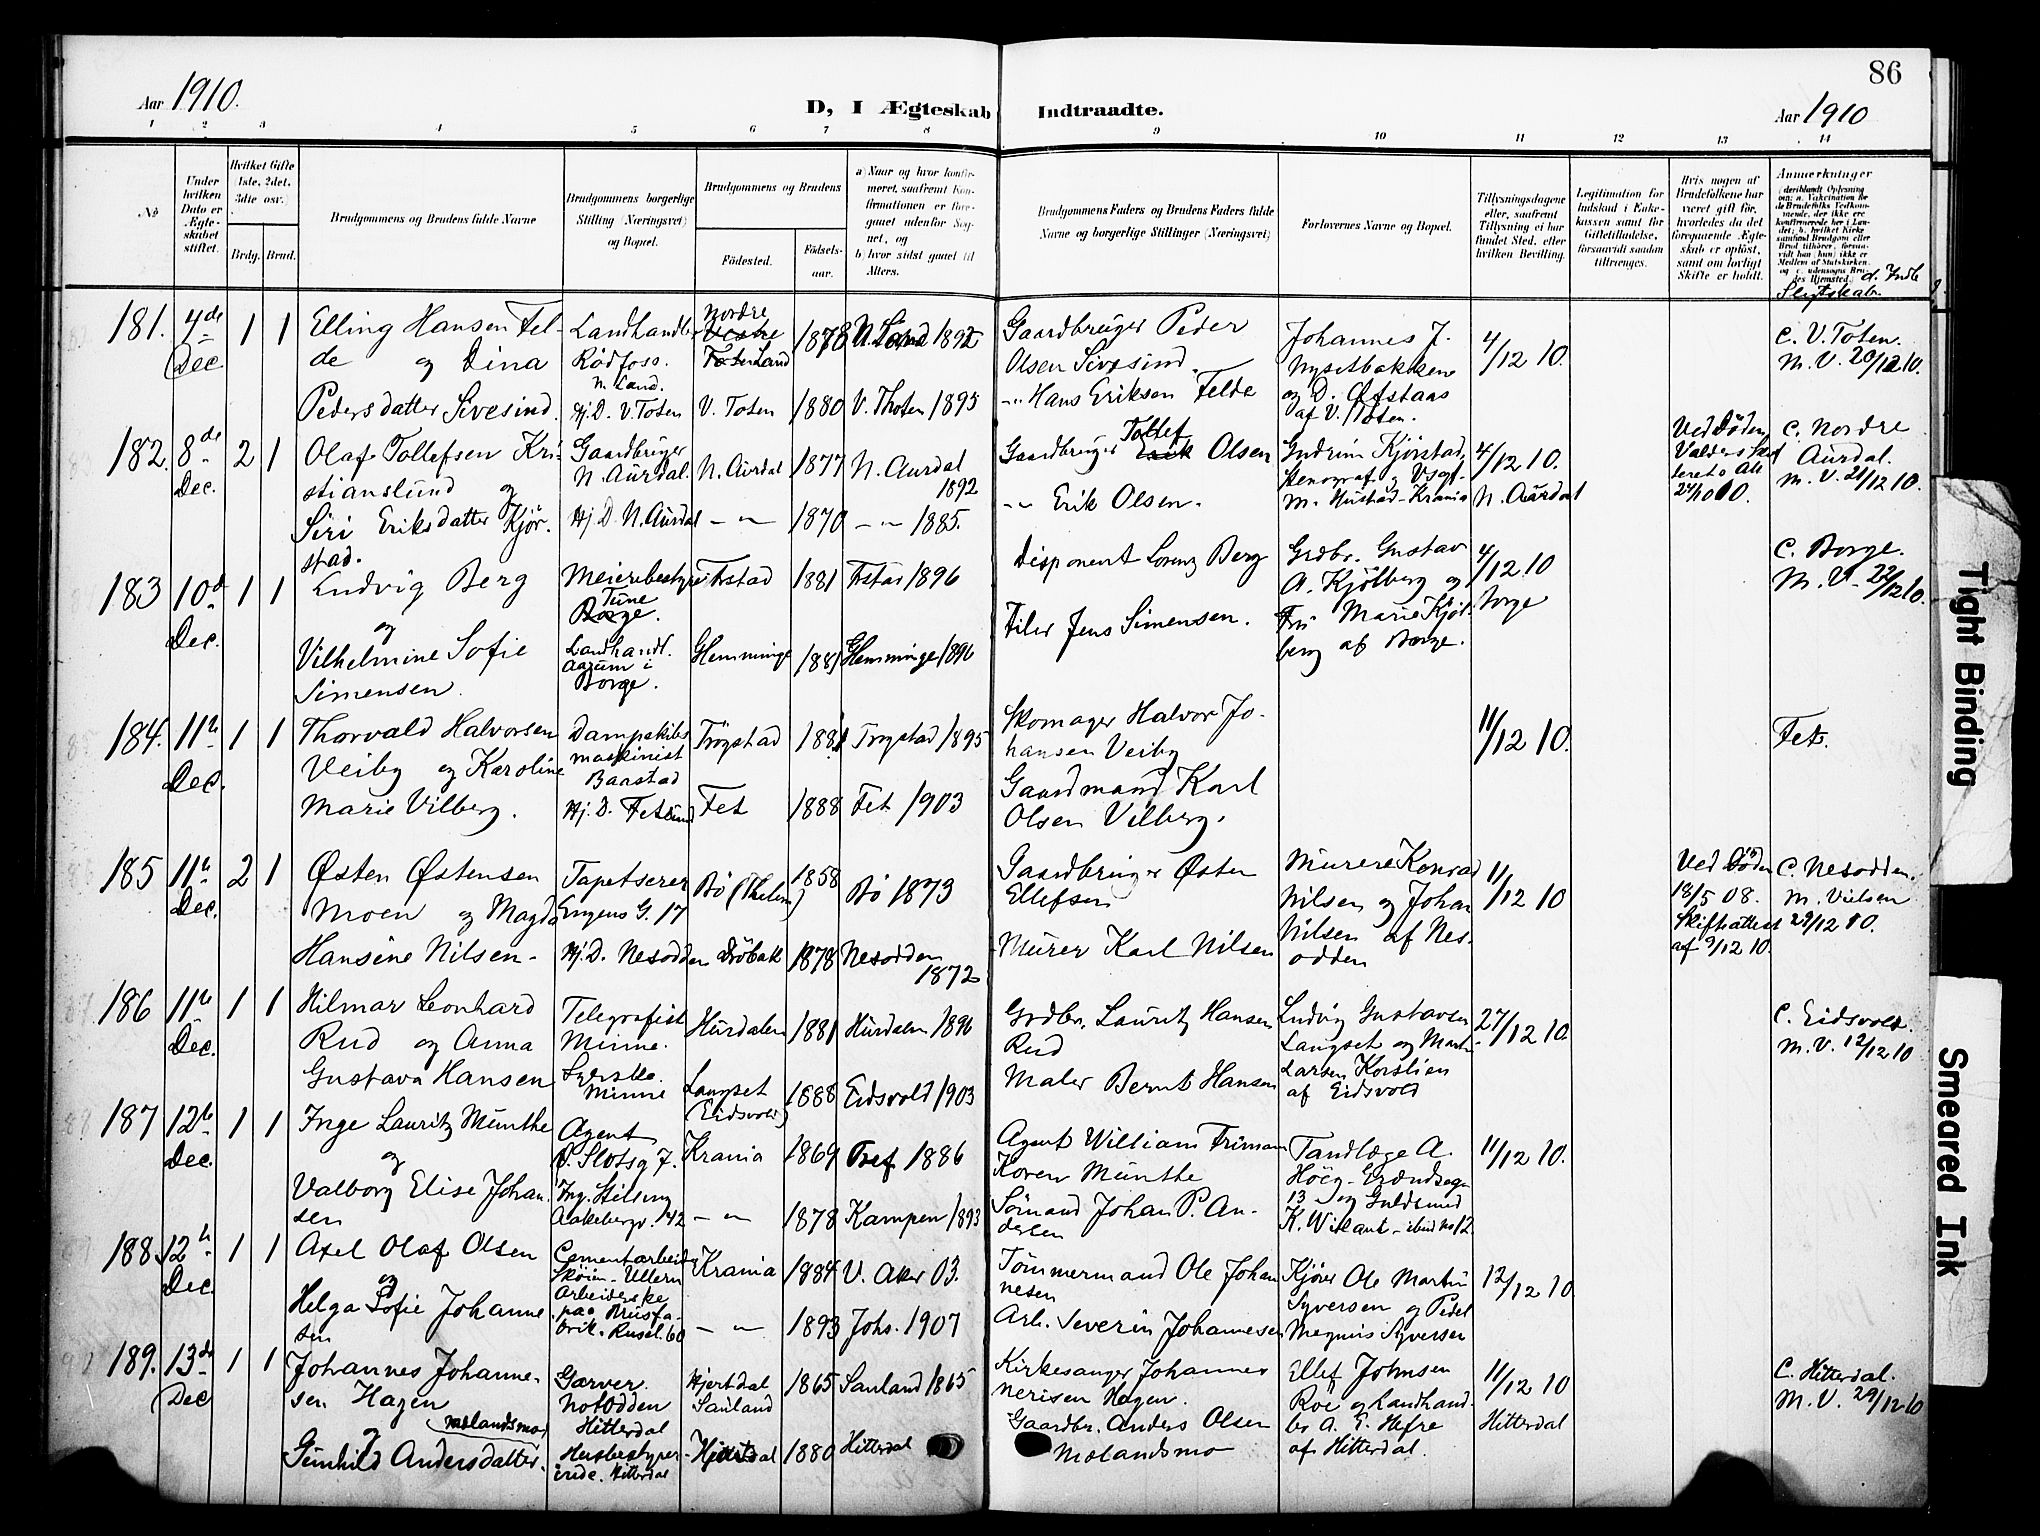 86
Aar 1910.
D, I Ægteskab Indtraadte.
Aar 1910
1 2 3 4 5 6 7 8 9 10 11 12 13 14
No
Under hvilken Dato er Ægteskabet stiftet.
Hvilket Gifte (1ste, 2det, 3die osv.)
Brdg. Brud.
Brudgommens og Brudens fulde Navne
Brudgommens borgerlige Stilling (Næringsvei) og Bopæl.
Brudgommens og Brudens
Fødested.
Fødselsaar.
a) Naar og hvor konfirmeret, saafremt Konfirmationen er foregaaet udenfor Sognet, og
b) hvor sidst gaaet til Alters.
Brudgommens Faders og Brudens Faders fulde Navne og borgerlige Stillinger (Næringsvei)
Forlovernes Navne og Bopæl.
Tillysningsdagene eller, saafremt Tillysning ei har fundet Sted, efter hvilken Bevilling.
Legitimation for Indskud i Enkekassen samt for Giftetilladelse, forsaavidt saadan tiltrænges.
Hvis nogen af Brudefolkene har været gift før, hvorledes da det foregaaende Ægteskab er opløst, samt om lovligt Skifte er holdt.
Anmærkninger
d. Indb Slegtskab.
181. 4de Dec 1 1 Elling Hansen Felde og Dina
Landhandler Rødfoss. N. Land.
Nordre Land 1878 N. Land 1892
Gaardbruger Peder Olsen Sivesind.
Johannes J. Nysetbakkene og D. Øfstaas af V. Toten.
4/12 10.
C. V. Toten. M. V. 20/12 10.
Pedersdatter Sivesind. Hj. D. V. Toten V. Toten 1880 V. Thoten 1895
-"- Hans Eriksen Felde
182. 8de Dec. 2 1 Olaf Tollefsen Kristianslund og
Gaardbruger N. Aurdal. N. Aurdal 1877 N. Aurdal 1892
Gaardbruger Tollef Olsen
Gudrun Kjørstad, stenograf og Vogt-m. Hustad-Krania
4/12 10. N. Aurdal
Ved Døden
24/10 00.
C. Nordre Aurdal. M. V. 21/12 10.
Siri Eriksdatter Kjørstad. Hj. D. N. Aurdal -"- 1870 -"- 1885.
-"- Erik Olsen.
183 10d Dec. 1 1 Ludvig Berg og
Meieribestyrer Tune
Trstad 1881 Trstad 1896
Disponent Lorenz Berg
Grdbr. Gustav A. Kjølberg og Fru Marie Kjølberg af Borge.
4/12 10 Borge
C. Borge. M. V. 22/12 10.
Vilhelmine Sofie Simensen.
Landhandl. Aarum i Borge.
Glemminge 1881 Glemminge 1896
Filer Jens Simensen.
184. 11te Dec. 1 1 Thorvald Halvorsen Veiby og Karoline
Dampskibsmaskinist Baastad
Trøgstad 1881 Trøgstad 1895
Skomager Halvor Johansen Veiby
11/12 10.
Fet.
Marie Vilberg. Hj. D. Fetsund Fet 1888 Fet 1903
Gaardmand Karl Olsen Vilberg.
185 11te Dec. 2 1 Østen Østensen Moen og Magda
Tapetserer Engens G. 17
Bø (Thelem) 1858 Bø 1873
Gaardbruger Østen Ellefsen
Murere Konrad Nilsen og Johan Nilsen af Nesodden
11/12 10
Ved Døden 18/5 08. Skifteattest af 9/12 10.
C. Nesodden. M. Vielsen 29/12 10.
Hansine Nilsen- Hj. D. Nesodden Drøbak 1878 Nesodden 1872
Murer Karl Nilsen
186 11te Dec. 1 1 Hilmar Leonhard Rud og Anna
Telegrafist Minne.
Hurdalen 1881 Hurdalen 1896
Grdbr. Lauritz Hansen Rud
Ludvig Gustavsen Langset og Martin Larsen Korslien af Eidsvold
27/12 10.
C. Eidsvold. M. V. 12/12 10
Gustava Hansen Syerske. Minne
Langset (Eidsvold) 1888 Eidsvold 1903
Maler Bernt Hansen
187 12te Dec. 1 1 Inge Lauritz Munthe og
Agent P. Slotsg 7. Krania 1869 Tref. 1886
Agent William Friman Koren Munthe
Tandlæge A. Höeg-
13 og Guldsmed K. Willant - ibid no 12.
11/12 10.
Valborg Elise Johansen
Aakebergv. 142 -"- 1878 Kampen 1893
Sömand Johan P. Andersen
188. 12te Dec. 1 1 Axel Olaf Olsen og
Cementarbeider Skøien - Ullern
Krania 1884 V. Aker 03.
Tömmermand Ole Johannesen
Kjörer Ole Martin Syversen og Pedel Magnus Syversen
12/12 10
Helga Sofie Johannesen
Arbeiderske paa Brusfabrik. Rusel. 60
-"- 1893 Johs. 1907
Arb. Severin Johannesen
189. 13de Dec 1 1 Johannes Johannesen Hagen
Garver. Notodden Hitterdal
Hjertdal Sauland 1865 Sauland 1865
Kirkesanger Johannes Nerisen Hagen.
Ellef Johnsen Roe og Landhandler A. E. Hefre af Hitterdal.
11/12 10 Hitterdal
C. Hitterdal. M. V. 29/12 10
(Molandsmo)
Gunhild Andersdatter. Husbestyrerinde. Hitterdal
Hjertdal 1880 Hitterdal
Gaardbr. Anders Olsen Molandsmo
Tight Binding
Smeared Ink